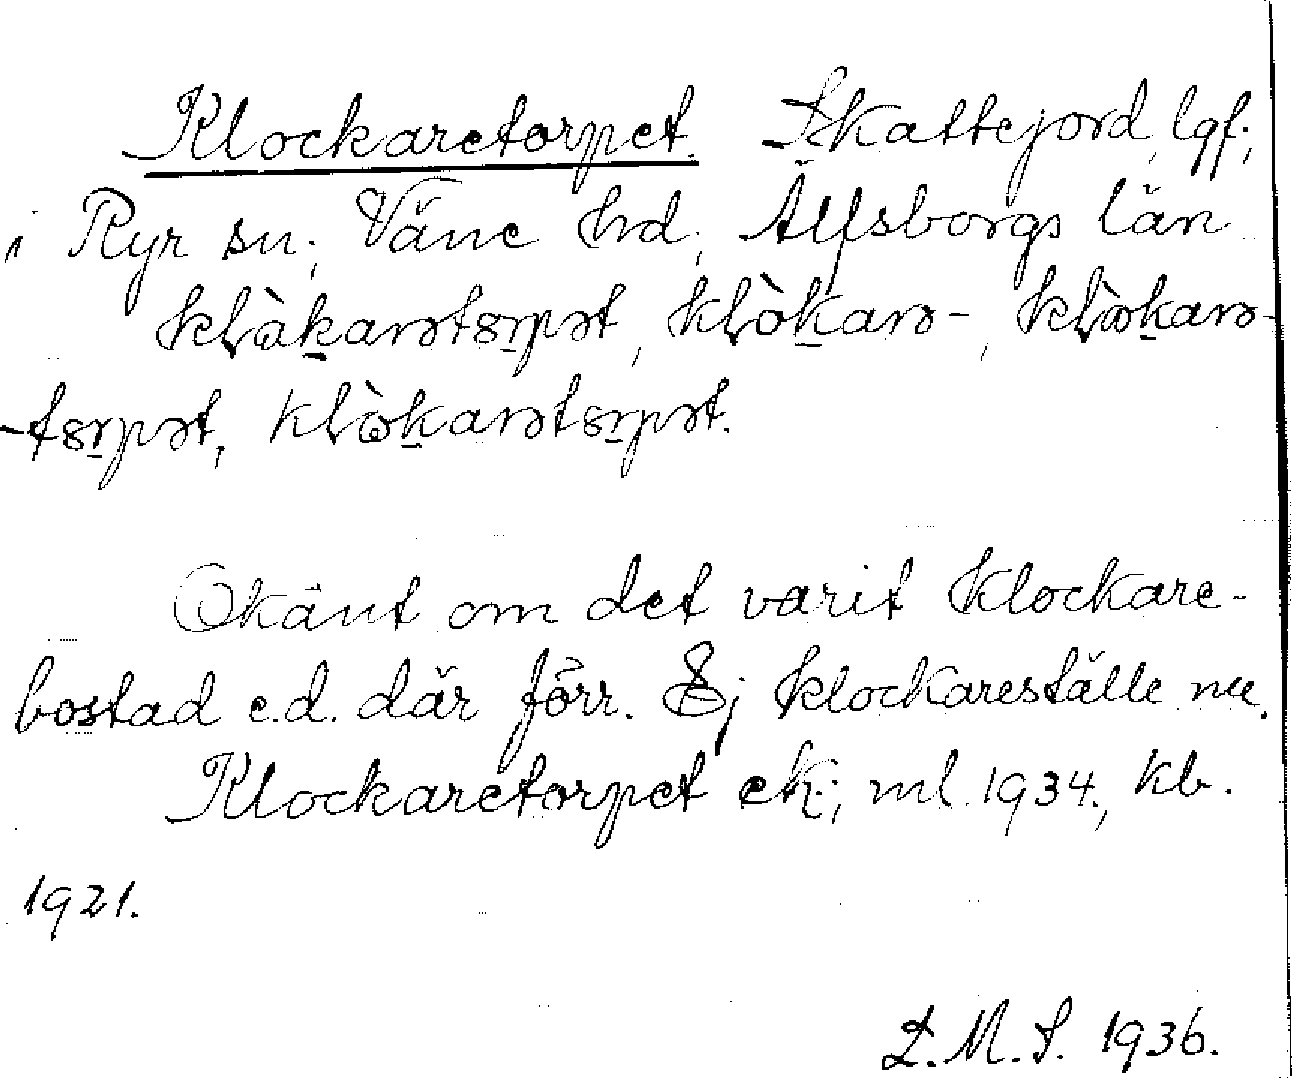 Klockaretorpet. Skattejord, lgf.,
i Ryr sn, Väne hd, Älfsborgs län
klòkarətorpət, klòkarə-, klòkarə-
-torpət, klòkarətorpət.
Okänt om det varit klockare-
bostad e.d. där förr. Ej klockareställe nu.
Klockaretorpet ek; ml. 1934., kb.
1921.
L.M.S. 1936.